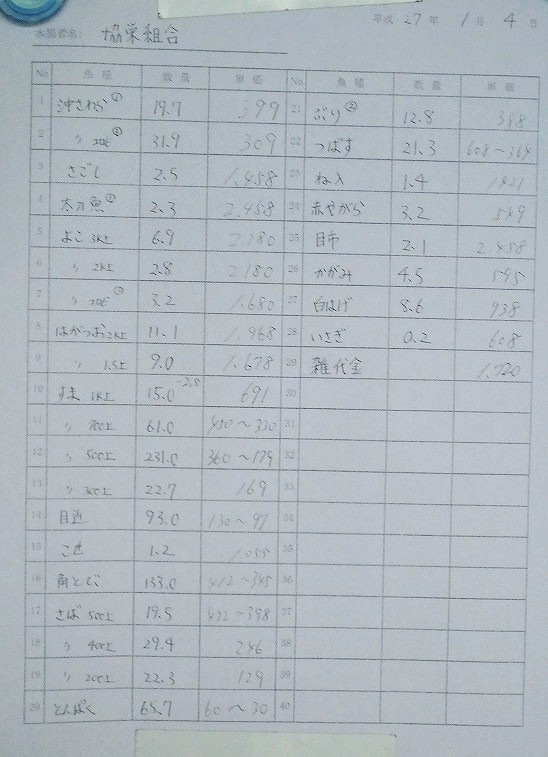 平成 27 年 1 月 4 日
水揚者名: 協栄組合
No. 魚種 数量 単価 No. 魚種 数量 単価
1 沖さわら① 19.7 399 21 ぶり② 12.8 398
2 〃 19 31.9 309 22 つばす 21.3 608〜369
3 さごし 2.5 1.458 23 ねり 1.4 1821
4 太刀魚① 2.3 2.458 24 赤やがら 3.2 549
5 よこ 3K上 6.9 2180 25 目市 2.1 2.458
6 〃 2K上 2.8 2180 26 かがみ 4.5 595
7 〃 3.2 1.680 27 白はげ 8.6 938
8 はがつお 2K上 11.1 1.968 28 いさぎ 0.2 608
9 〃 1.5上 9.0 1.678 29 雑代金 1.720
10 すま 1K上 15.0 691 30
11 〃 700上 61.0 450〜330 31
12 〃 500上 231.0 360〜179 32
13 〃 300上 22.7 169 33
14 目近 93.0 130〜97 34
15 こせ 1.2 1.055 35
16 角とび 133.0 412〜345 36
17 さば 500上 19.5 432〜398 37
18 〃 400上 29.4 246 38
19 〃 200上 22.3 129 39
20 とんぱく 65.7 60〜30 40